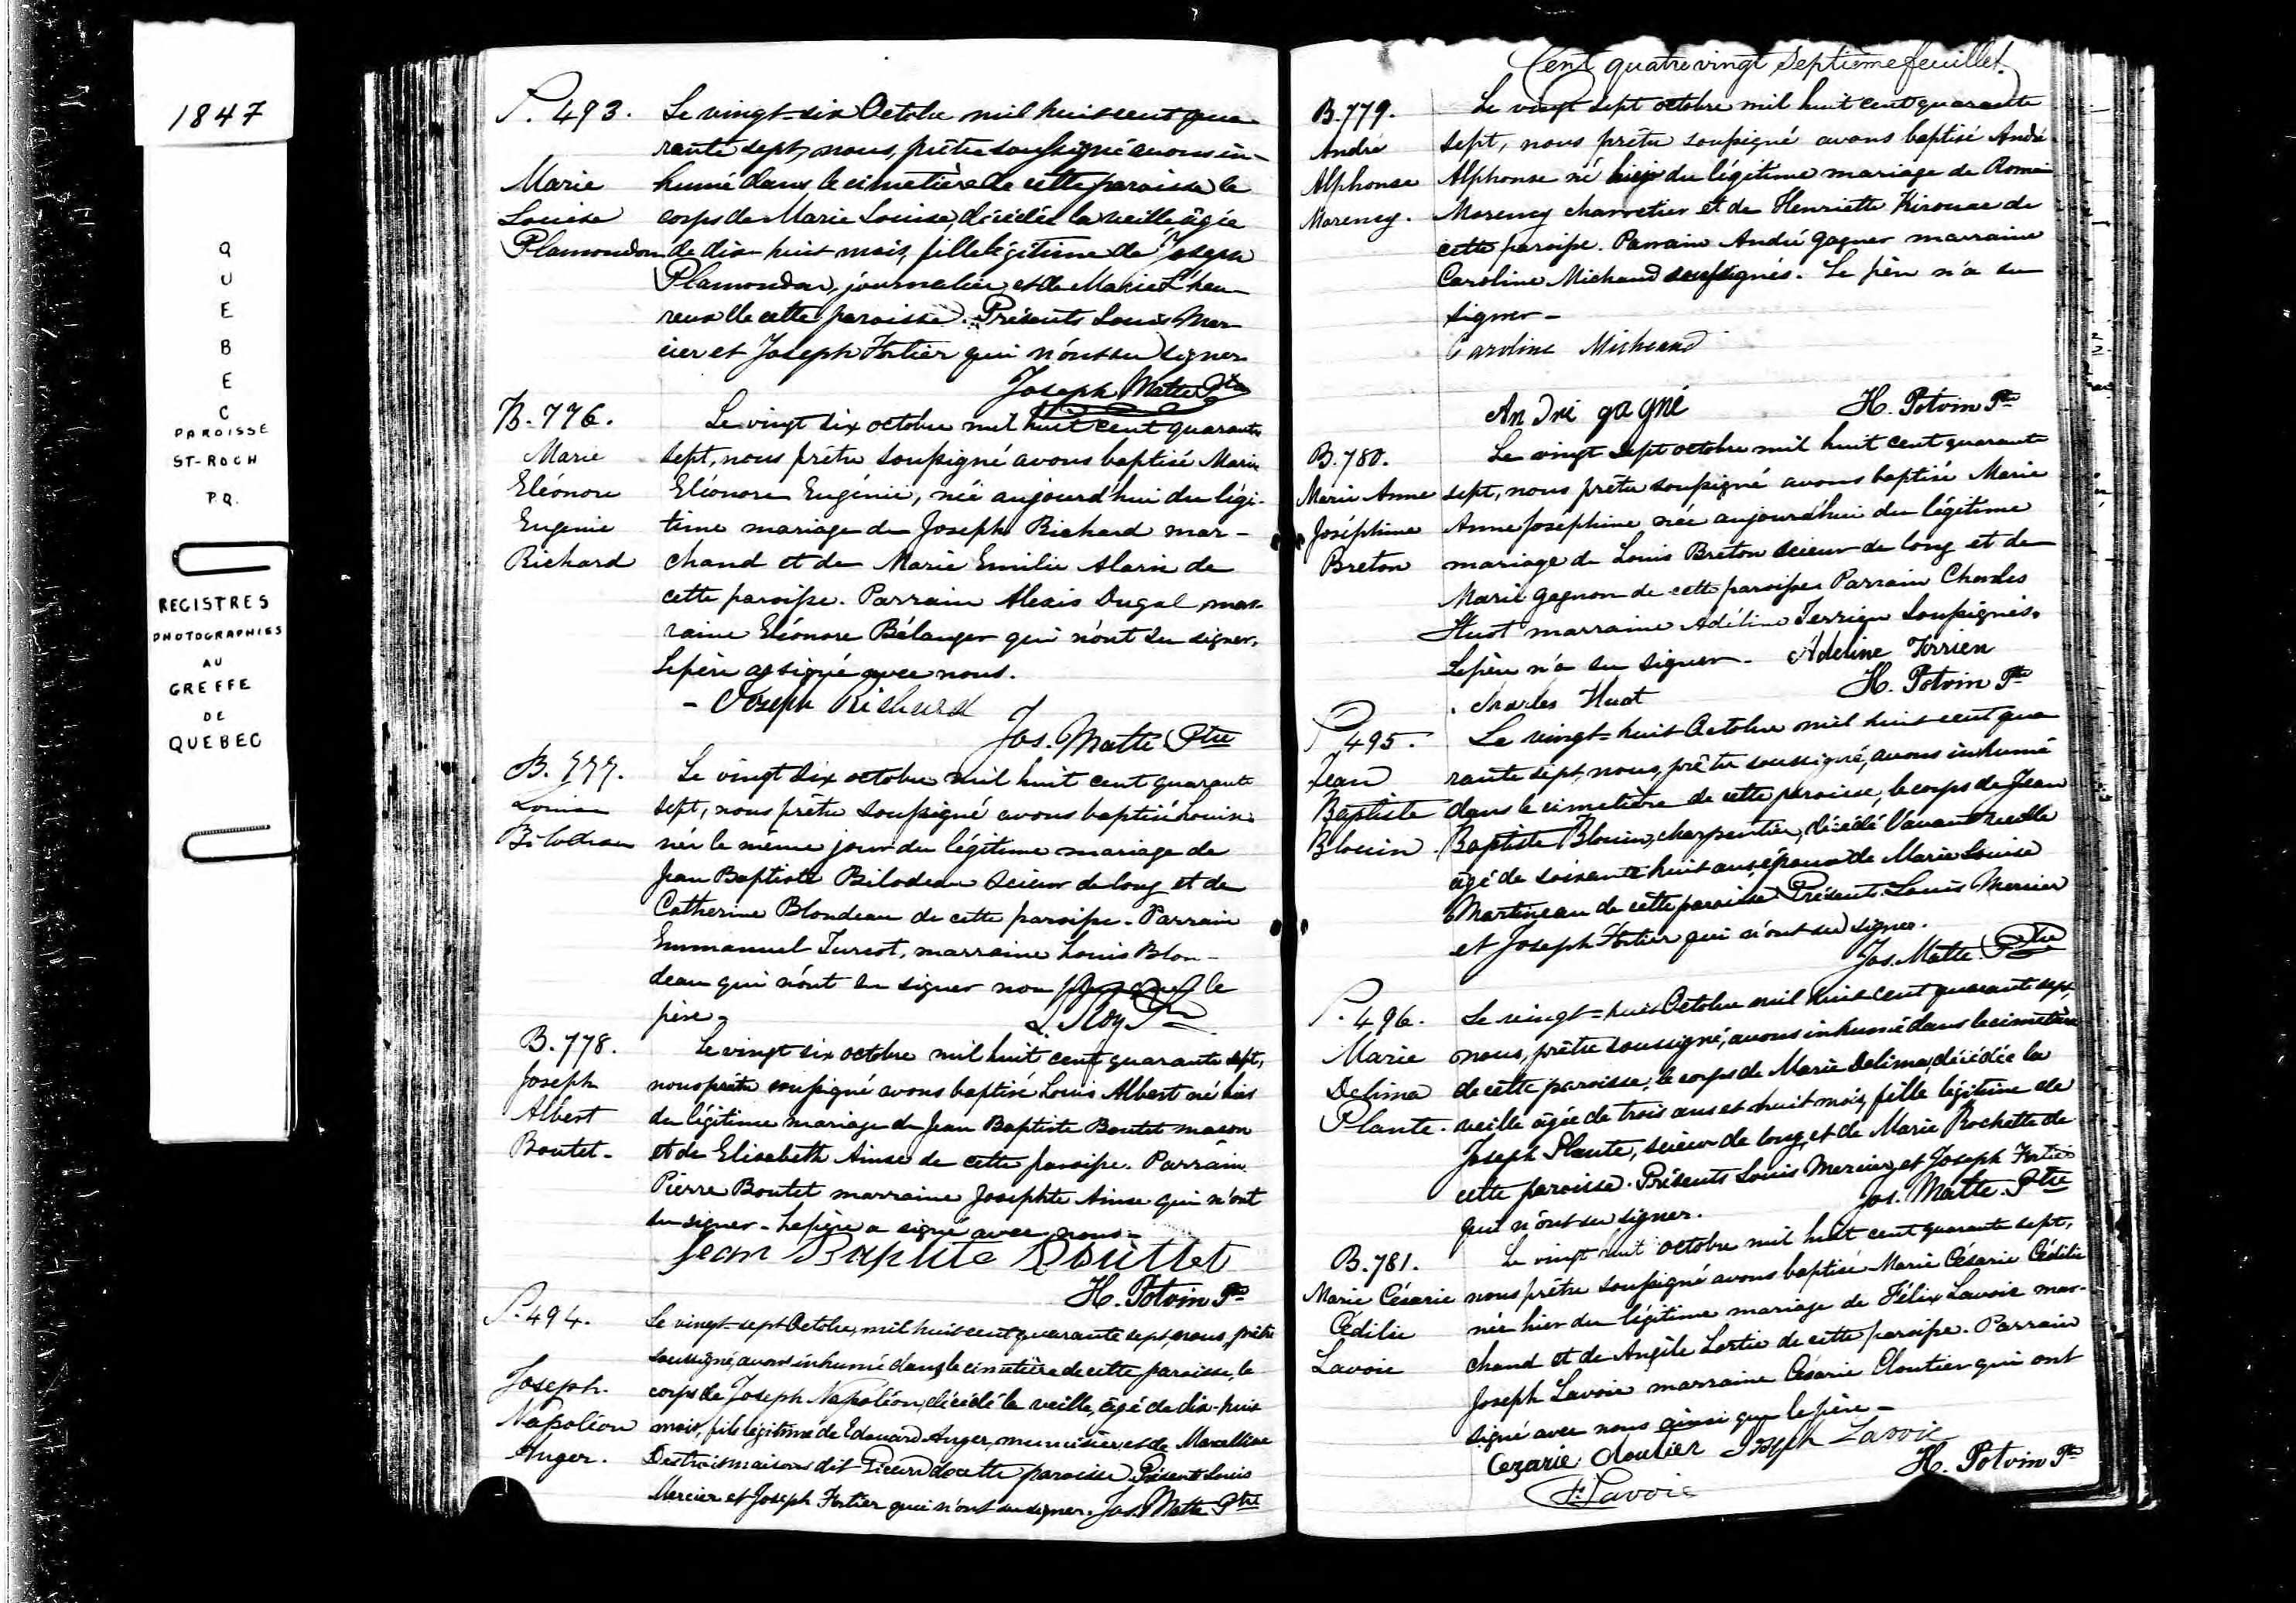 1847
QUEBEC
PAROISSE
ST-ROCH
P.Q.
REGISTRES
PHOTOGRAPHIES
AU
GREFFE
DE
QUEBEC
S. 493.
Marie
Louise
Plamondon
Le vingt-six Octobre mil huit cent qua-
rante sept, nous, prêtre soussigné avons in-
humé dans le cimetière de cette paroisse le
corps de Marie Louise, décédée la veille âgée
de dix-huit mois, fille légitime de Joseph
Plamondon, journalier, et de Marie L'heu-
reux de cette paroisse. Présents Louis Mer-
cier et Joseph Fortier qui n'ont su signer
Joseph Matte Ptre
B. 776.
Marie
Eléonore
Eugenie
Richard
Le vingt six octobre mil huit cent quarante
sept, nous prêtre soussigné avons baptisé Marie
Eléonore Eugénie, née aujourd'hui du légi-
time mariage de Joseph Richard mar-
chand et de Marie Emilie Alarie de
cette paroisse. Parrain Alexis Dugal mar-
raine Eléonore Bélanger qui n'ont su signer.
Le père a signé avec nous.
- Joseph Richard
Jos. Matte Ptre
B. 777.
Louise
Bilodeau
Le vingt six octobre mil huit cent quarante
sept, nous prêtre soussigné avons baptisé Louise
née le même jour du légitime mariage de
Jean Baptiste Bilodeau scieur de long et de
Catherine Blondeau de cette paroisse. Parrain
Emmanuel Turcot, marraine Louis Blon-
deau qui n'ont su signer non plus que le
père.
L. Roy Ptre
B. 778.
Joseph
Albert
Boutet.
Le vingt six octobre mil huit cent quarante sept,
nous prêtre soussigné avons baptisé Louis Albert né hier
du légitime mariage de Jean Baptiste Boutet maçon
et de Elisabeth Ainse de cette paroisse. Parrain
Pierre Boutet marraine Josephte Ainse qui n'ont
su signer - Le père a signé avec nous -
Jean Baptiste Bouttet
H. Potvin Ptre
S. 494.
Joseph
Napoléon
Auger.
Le vingt-sept Octobre, mil huit cent quarante sept, nous, prêtre
soussigné, avons inhumé dans le cimetière de cette paroisse, le
corps de Joseph Napoléon, décédé la veille, âgé de dix-huit
mois, fils légitime de Edouard Auger, menuisier et de Marcelline
Destroismaisons dit Picard de cette paroisse. Présents Louis
Mercier et Joseph Fortier qui n'ont su signer. Jos. Matte Ptre
Cent quatre vingt septieme feuillet.
B. 779.
André
Alphonse
Marency.
Le vingt sept octobre mil huit cent quarante
sept, nous prêtre soussigné avons baptisé André
Alphonse né hier du légitime mariage de Romi
Marency charretier et de Henriette Kirouac de
cette paroisse. Parrain André Gagner marraine
Caroline Michaud soussignés. Le père n'a su
signer -
Caroline Micheaud
André gagné
H. Potvin Ptre
B. 780.
Marie Anne
Joséphine
Breton
Le vingt sept octobre mil huit cent quarante
sept, nous prêtre soussigné avons baptisé Marie
Anne Joséphine née aujourd'hui du légitime
mariage de Louis Breton scieur de long et de
Marie Gagnon de cette paroisse. Parrain Charles
Huot marraine Adéline Terrien soussignés.
Le père n'a su signer. Adeline Terrien
. Charles Huot
H. Potvin Ptre
S. 495.
Jean
Baptiste
Blouin.
Le vingt-huit Octobre mil huit cent qua-
rante sept, nous, prêtre soussigné, avons inhumé
dans le cimetière de cette paroisse, le corps de Jean
Baptiste Blouin, charpentier, décédé l'avant veille
âgé de soixante huit ans, époux de Marie Louise
Martineau de cette paroisse. Présent Louis Mercier
et Joseph Fortier qui n'ont su signer.
Jos. Matte Ptre
S. 496.
Marie
Delima
Plante.
Le vingt-huit Octobre mil huit cent quarante sept,
nous, prêtre soussigné, avons inhumé dans le cimetière
de cette paroisse, le corps de Marie Delima, décédée la
veille âgée de trois ans et huit mois, fille légitime de
Joseph Plante, scieur de long, et de Marie Rochette de
cette paroisse. Présents Louis Mercier, et Joseph Fortier
qui n'ont su signer.
Jos. Matte. Ptre
B. 781.
Marie Césarie
Cédilie
Lavoie
Le vingt huit octobre mil huit cent quarante sept,
nous prêtre soussigné avons baptisé Marie Césarie Cédilie
née hier du légitime mariage de Félix Lavoie mar-
chand et de Angèle Lortie de cette paroisse. Parrain
Joseph Lavoie marraine Césarie Cloutier qui ont
signé avec nous ainsi que le père -
Cezarie Cloutier Joseph Lavoie
H. Potvin Ptre
F. Lavoie